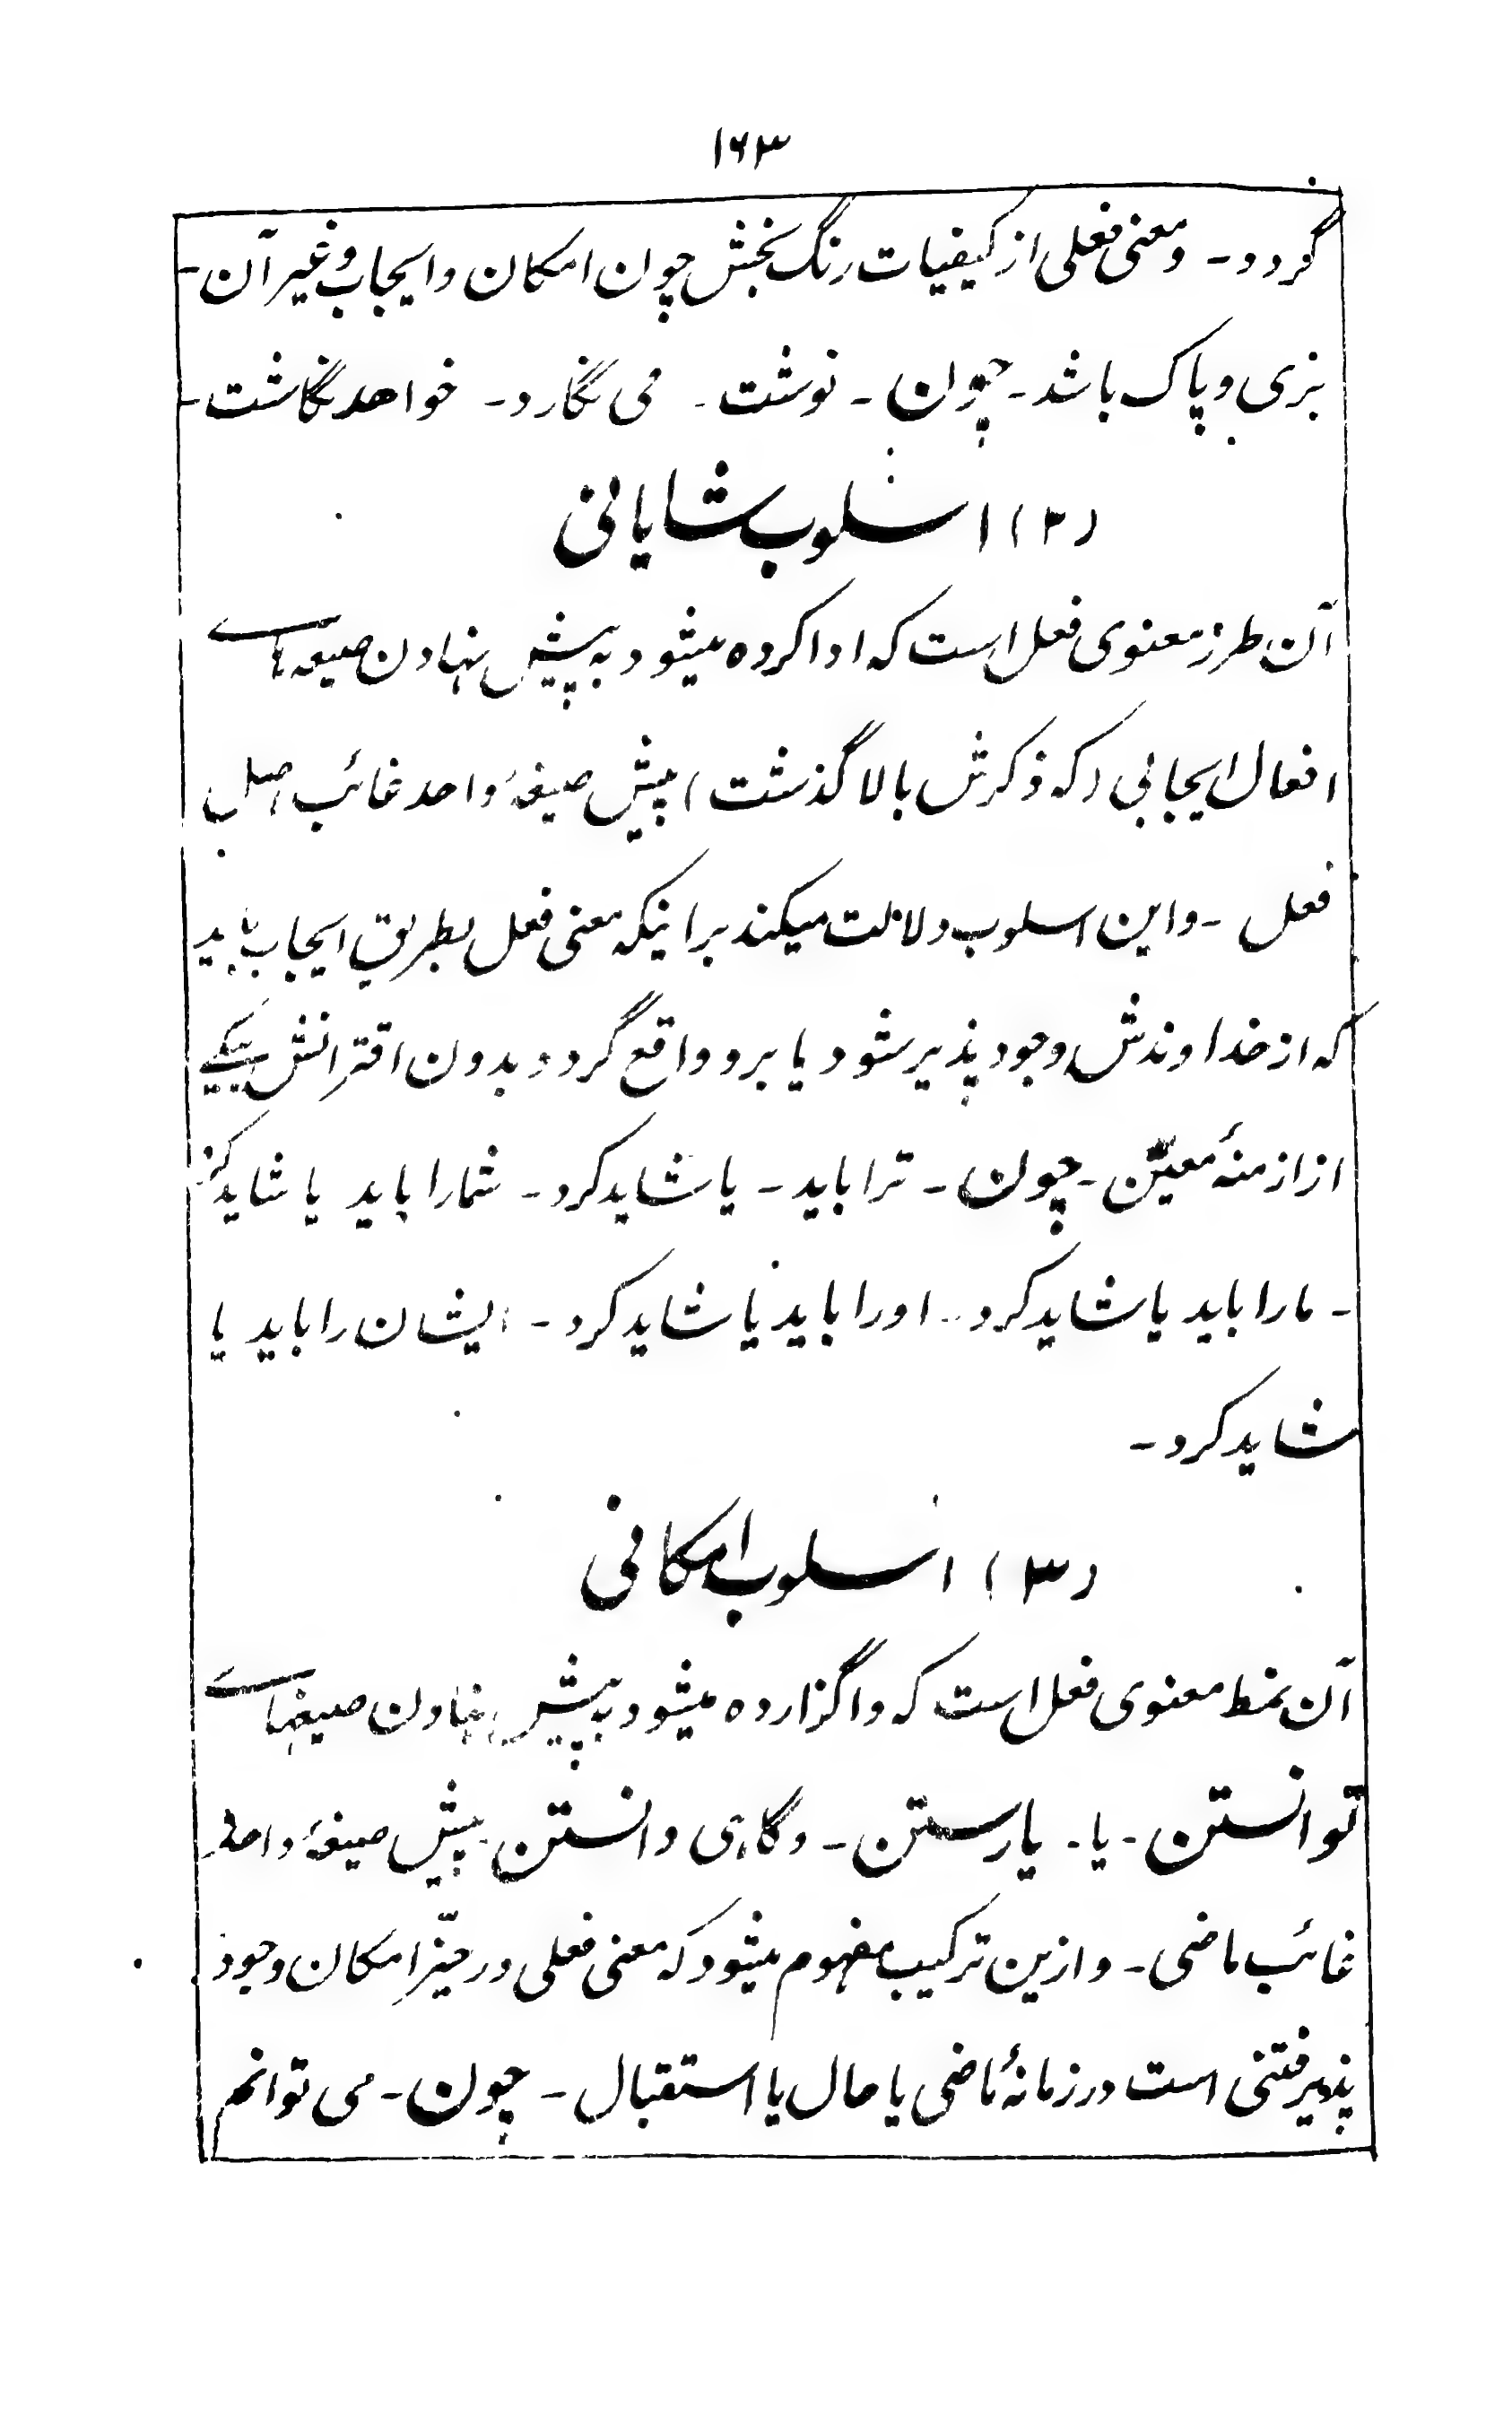 ۱۶۳
گردد - و معنی فعلی از کیفیات رنگ بخش چون امکان و ایجاب و غیر آن -
بری و پاک باشد - چون - نوشت - می نگارد - خواهد نگاشت -
(۲) اسلوب شایانی
آن طرز معنوی فعل است که ادا کرده میشود به پیش نهادن صیغه هاے
افعال ایجابی (که ذکرش بالا گذشت) پیش صیغهٔ واحد غائب اصل
فعل - و این اسلوب دلالت میکند بر اینکه معنی فعل بطریق ایجاب باید
که از خداوندش وجود پذیر شود یا برو واقع گردد بدون اقترانش بیکے
از ازمنهٔ معیّن - چون - ترا باید - یا شاید کرد - شما را باید یا شاید کرد
- ما را باید یا شاید کرد - او را باید یا شاید کرد - ایشان را باید یا
شاید کرد -
(۳) اسلوب امکانی
آن نمط معنوی فعل است که واگزارده میشود به پیش نهادن صیغهاے
توانستن - یا - یارستن - و گاہی دانستن - پیش صیغهٔ واحد
غائب ماضی - و ازین ترکیب مفهوم میشود که معنی فعلی در حیّز امکان وجود
پذیرفتنی است در زمانهٔ ماضی یا حال یا استقبال - چون - می توانم